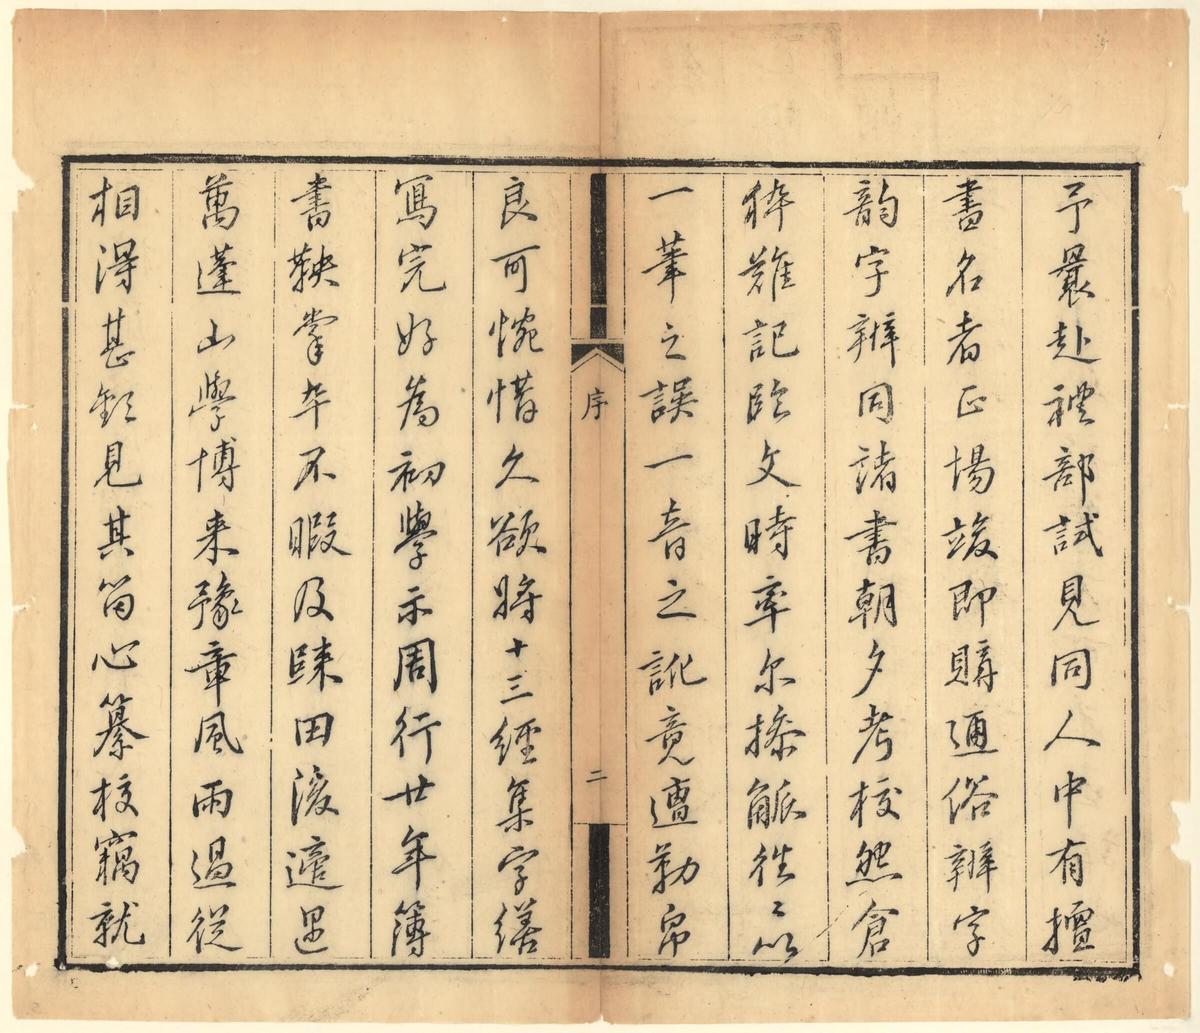 予曩赴禮部試見同人中有擅
書名者正場竣即購通俗辨字
韻字辨同諸書朝夕考校然倉
猝難記臨文時率尔操觚徃〻以
一筆之誤一音之訛竟遭勒帛
序
二
良可惋惜久欲將十三經集字繕
寫完好為初學示周行廿年簿
書鞅掌卒不暇及歸田後適遇
萬蓬山學博来豫章風雨過從
相得甚歡見其留心纂校竊就